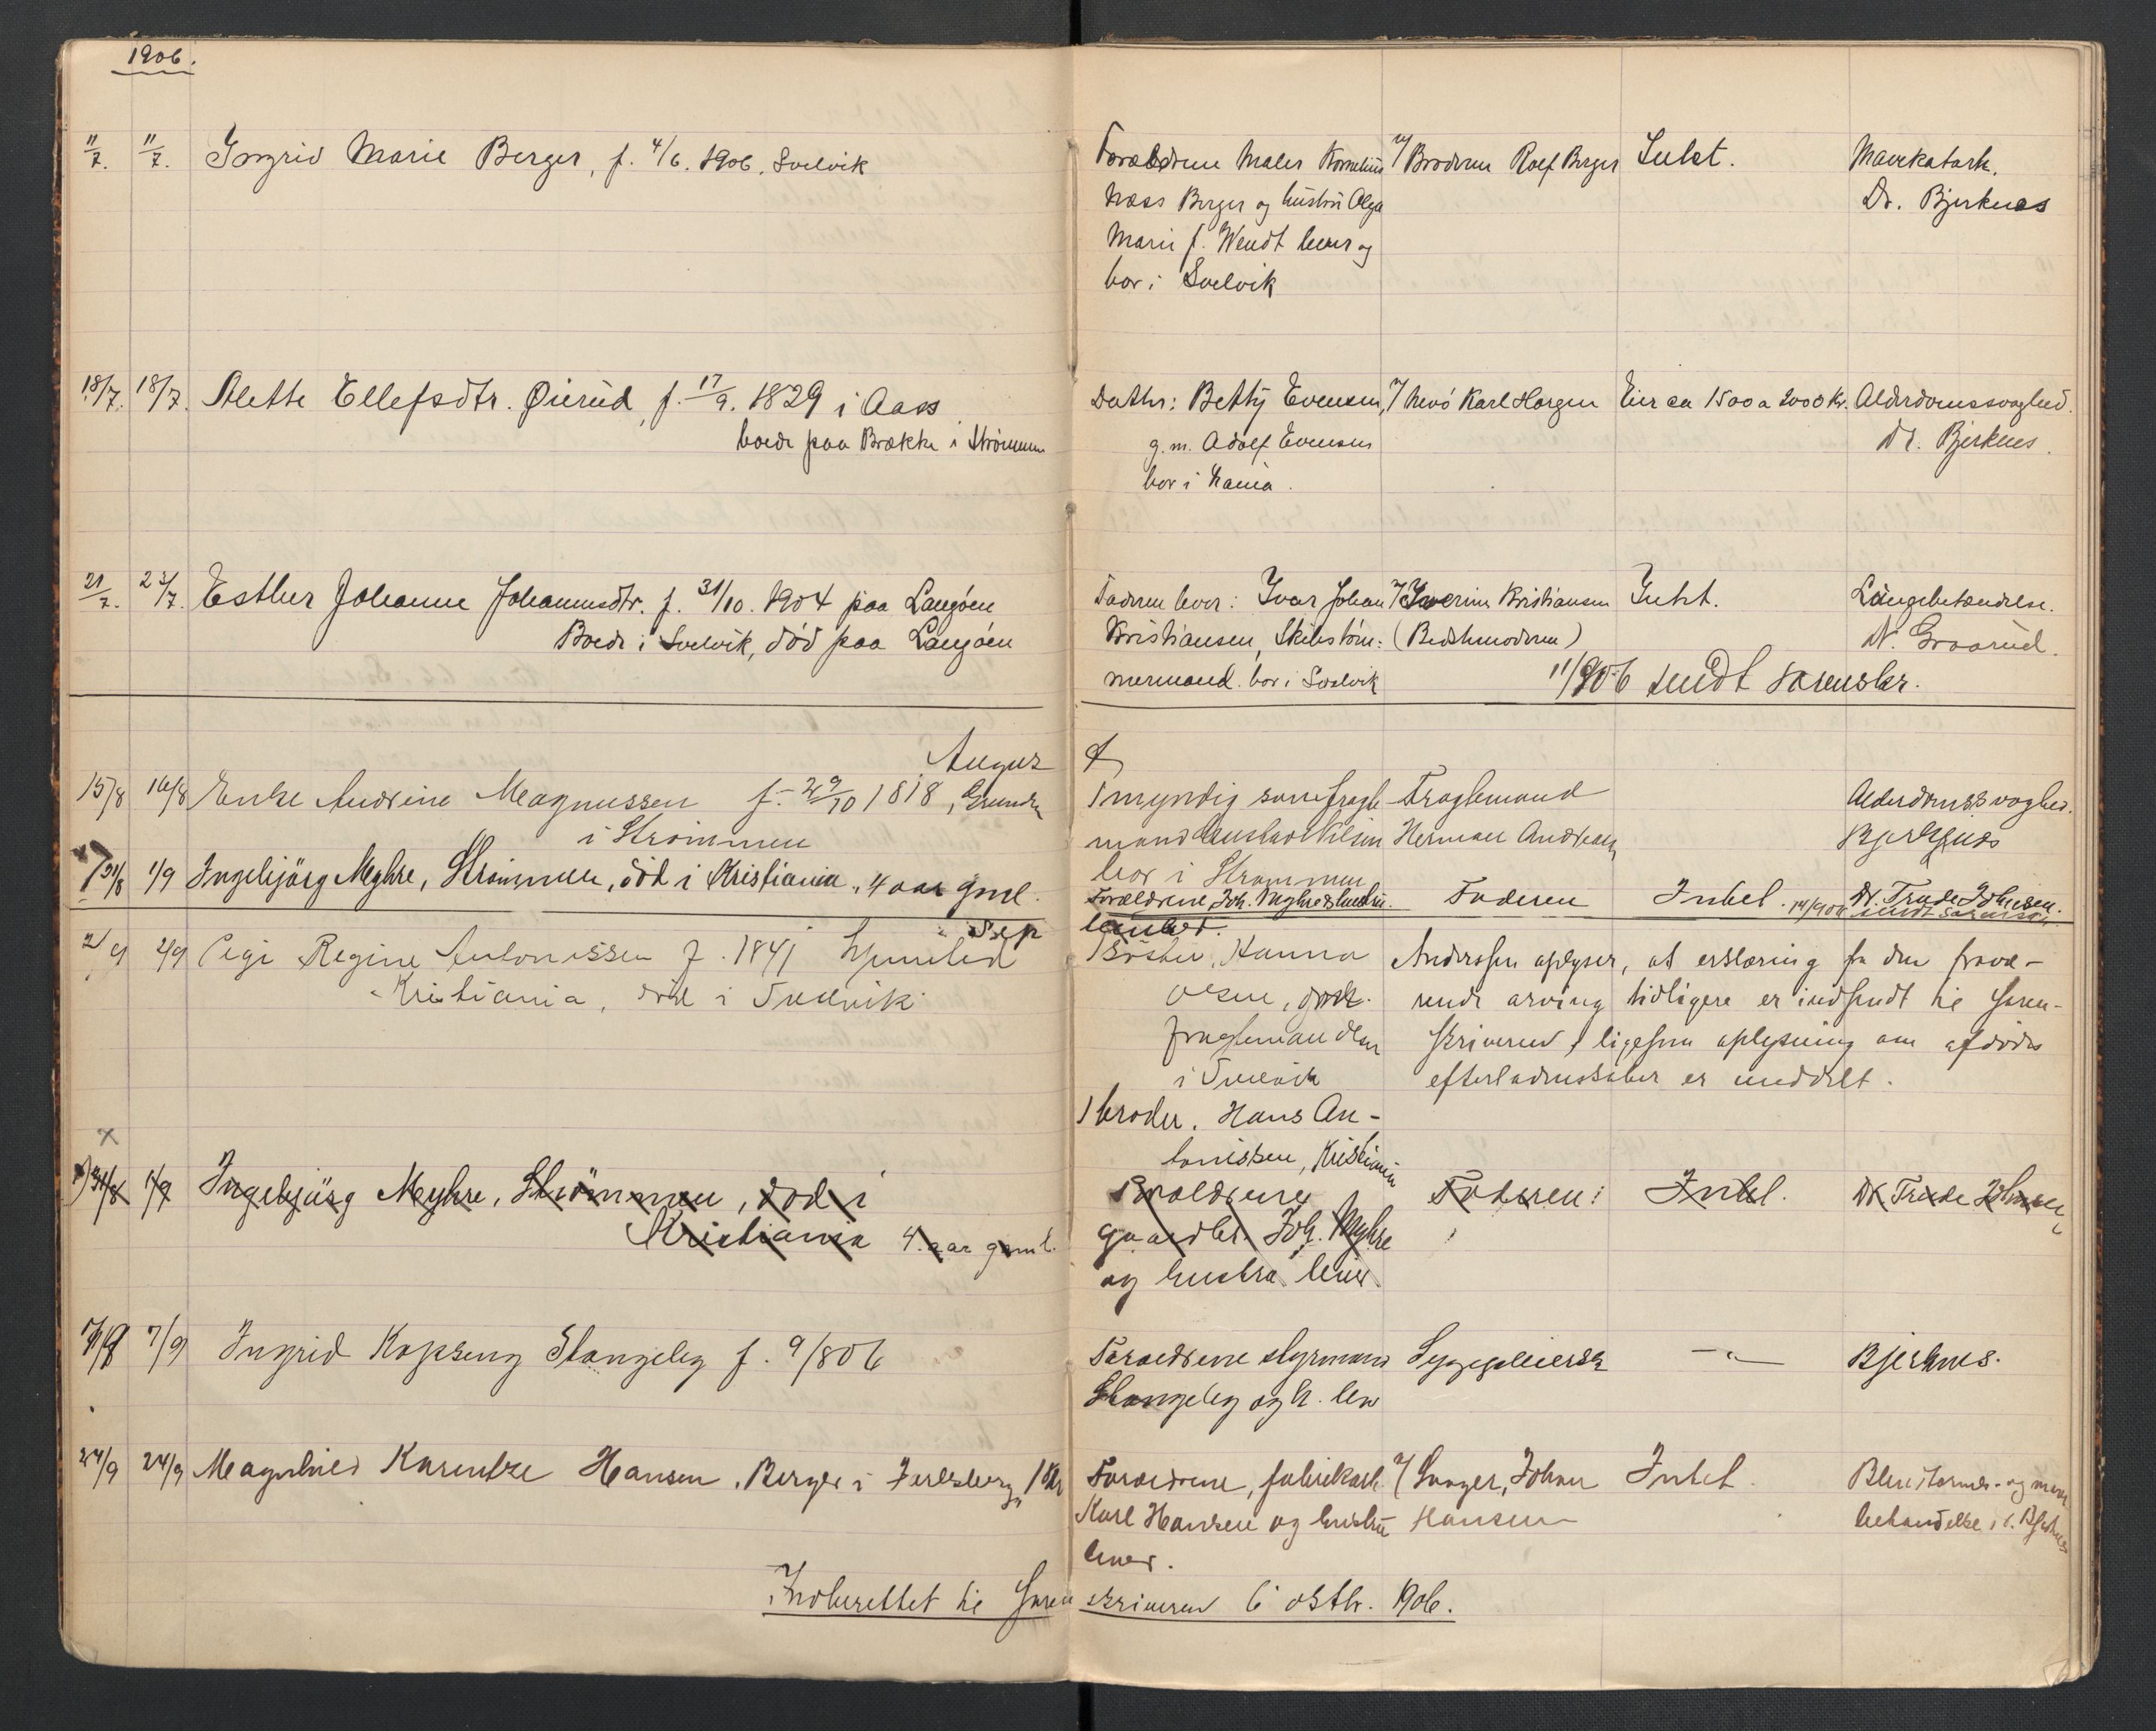 1906.
11/7. 11/7. Ingrid Marie Berger, f. 4/6. 1906. Svelvik
Forældrene Maler Kornelius
Næss Berger og hustru Olga
Marie f. Wendt lever og
bor i Svelvik
Broderen Rolf Berger
Intet.
Mavekatarh.
Dr. Bjerknes
18/7. 18/7. Alette Ellefsdtr. Øierud, f. 17/9. 1829 i Aass
boede paa Brække i Strømmen
Datter: Betty Evensen,
g. m. Adolf Evensen
bor i
Karl Horgen
Eier ca 1500 a 2000 Kr.
Alderdomssvaghed.
Dr. Bjerknes.
21/7. 23/7. Esther Johanne Johannesdtr. f. 31/10. 1904 paa Langøen
Boede i Svelvik, død paa Langøen
Faderen lever: Ivar Johan
Kristiansen, Skibstøm:
mermand. bor i Svelvik
Severine Kristiansen
(Bedstemoderen)
Intet.
Lungebetændelse.
Dr. Graarud.
11/8 06 sendt sorenskr.
August
15/8 16/8 Enke Andrine Magnussen f. 29/10 1818, Grunden
i Strømmen
1 myndig søn fragte
mand Gustav Nilsen
bor i Strømmen
Fragtemand
Herman Andreasen
Alderdomssvaghed.
Bjerknes
31/8 1/9 Ingebjørg Myhre, Strømmen, død i Kristiania. 4 aar gml.
Forældrene, Joh. Myhre & hustru.
lever.
Faderen
Intet.
14/9 06 sendt
Dr. Trude Johnsen.
Sep
2/9 2/9 Pige Regine Antonissen f. 1841 hjemsted
Kristiania, død i Svelvik
1 søster, Hanna
Olsen,
fragtemand Olsen
i Svelvik
1 broder. Hans An-
tonissen, Kristiania
Anderssen oplyser, at erklæring fra den fravæ-
rende arving tidligere er indsendt til soren-
skriveren, ligesom oplysning om afdødes
efterladenskaber er meddelt.
x
31/8 1/9 Ingebjørg Myhre, Strømmen, død i
Kristiania 4 aar gml.
Forældrene
gaardbr. Joh. Myhre
og hustru lever
Faderen:
Intet.
Dr. Trude Johnsen
7/9 7/9 Ingrid Kopseng Stangeby f. 9/8 06
Forældrene styrmand
Stangeby og h. lever
Sygepleierske
— " —
Bjerknes.
24/9 24/9 Magnhild Karentze Hansen, Berger i Jarlsberg,
Forældrene, fabrikarb.
Karl Hansen og hustru
lever.
Svoger, Johan
Hansen
Intet.
Blindtarms- og mave
betændelse, Bjerknes
Indberettet til Soren skriveren 6 oktbr. 1906.